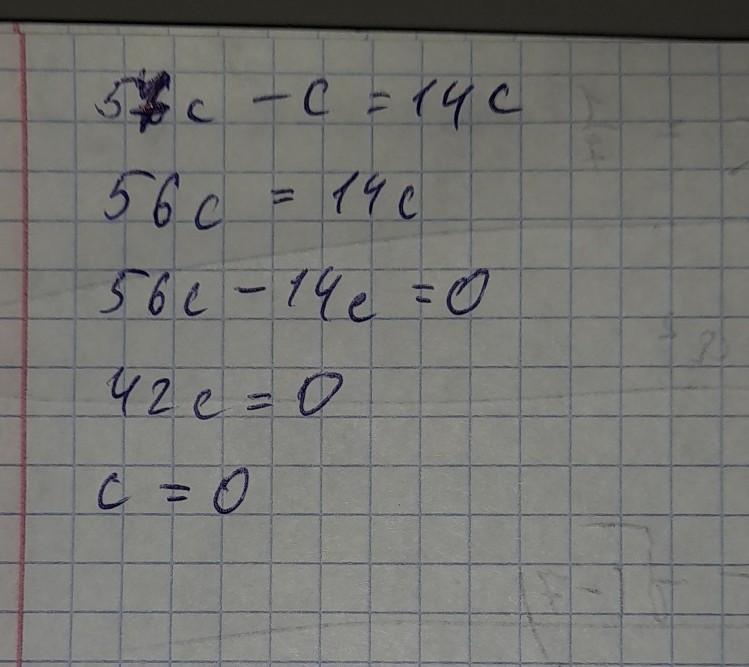 56c - c = 14c
56c = 14c
56c - 14c = 0
42c = 0
c = 0